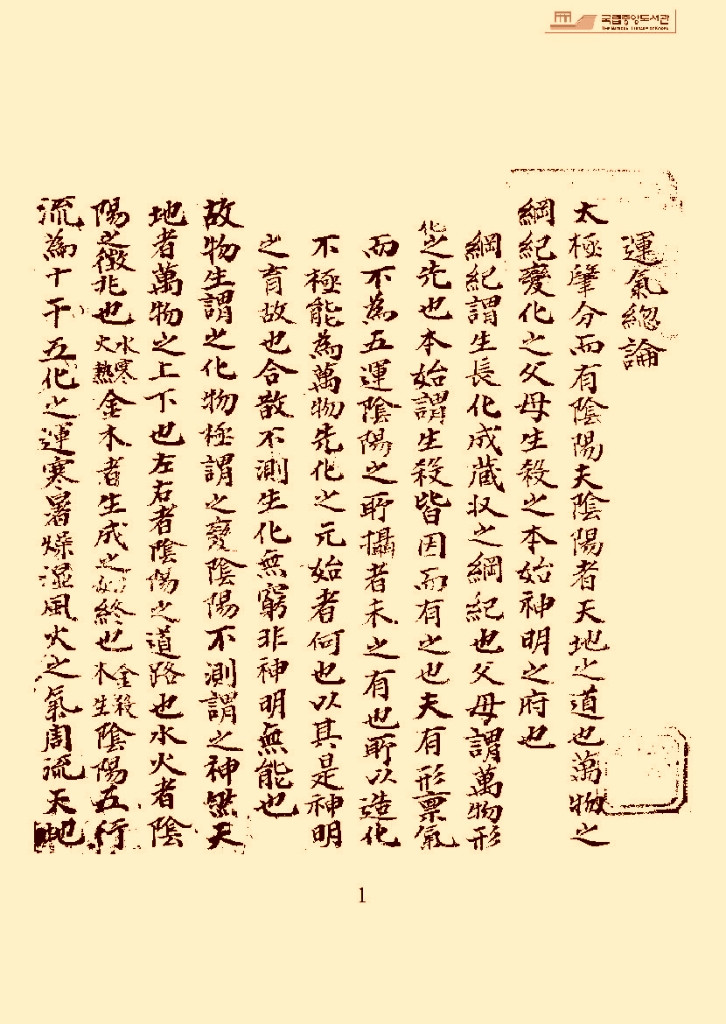 국립중앙도서관
THE NATIONAL LIBRARY OF KOREA
運氣總論
太極肇分而有陰陽夫陰陽者天地之道也萬物之
綱紀變化之父母生殺之本始神明之府也
綱紀謂生長化成蔵収之綱紀也父母謂萬物形
化之先也本始謂生殺皆因而有之也夫有形禀氣
而不為五運陰陽之所攝者未之有也所以造化
不極能為萬物先化之元始者何也以其是神明
之育故也合散不測生化無窮非神明無能也
故物生謂之化物極謂之變陰陽不測謂之神然天
地者萬物之上下也左右者陰陽之道路也水火者陰
陽之徴兆也水寒火熱金木者生成之始終也金殺木生陰陽五行
流為十干五化之運寒暑燥湿風火之氣周流天地
1